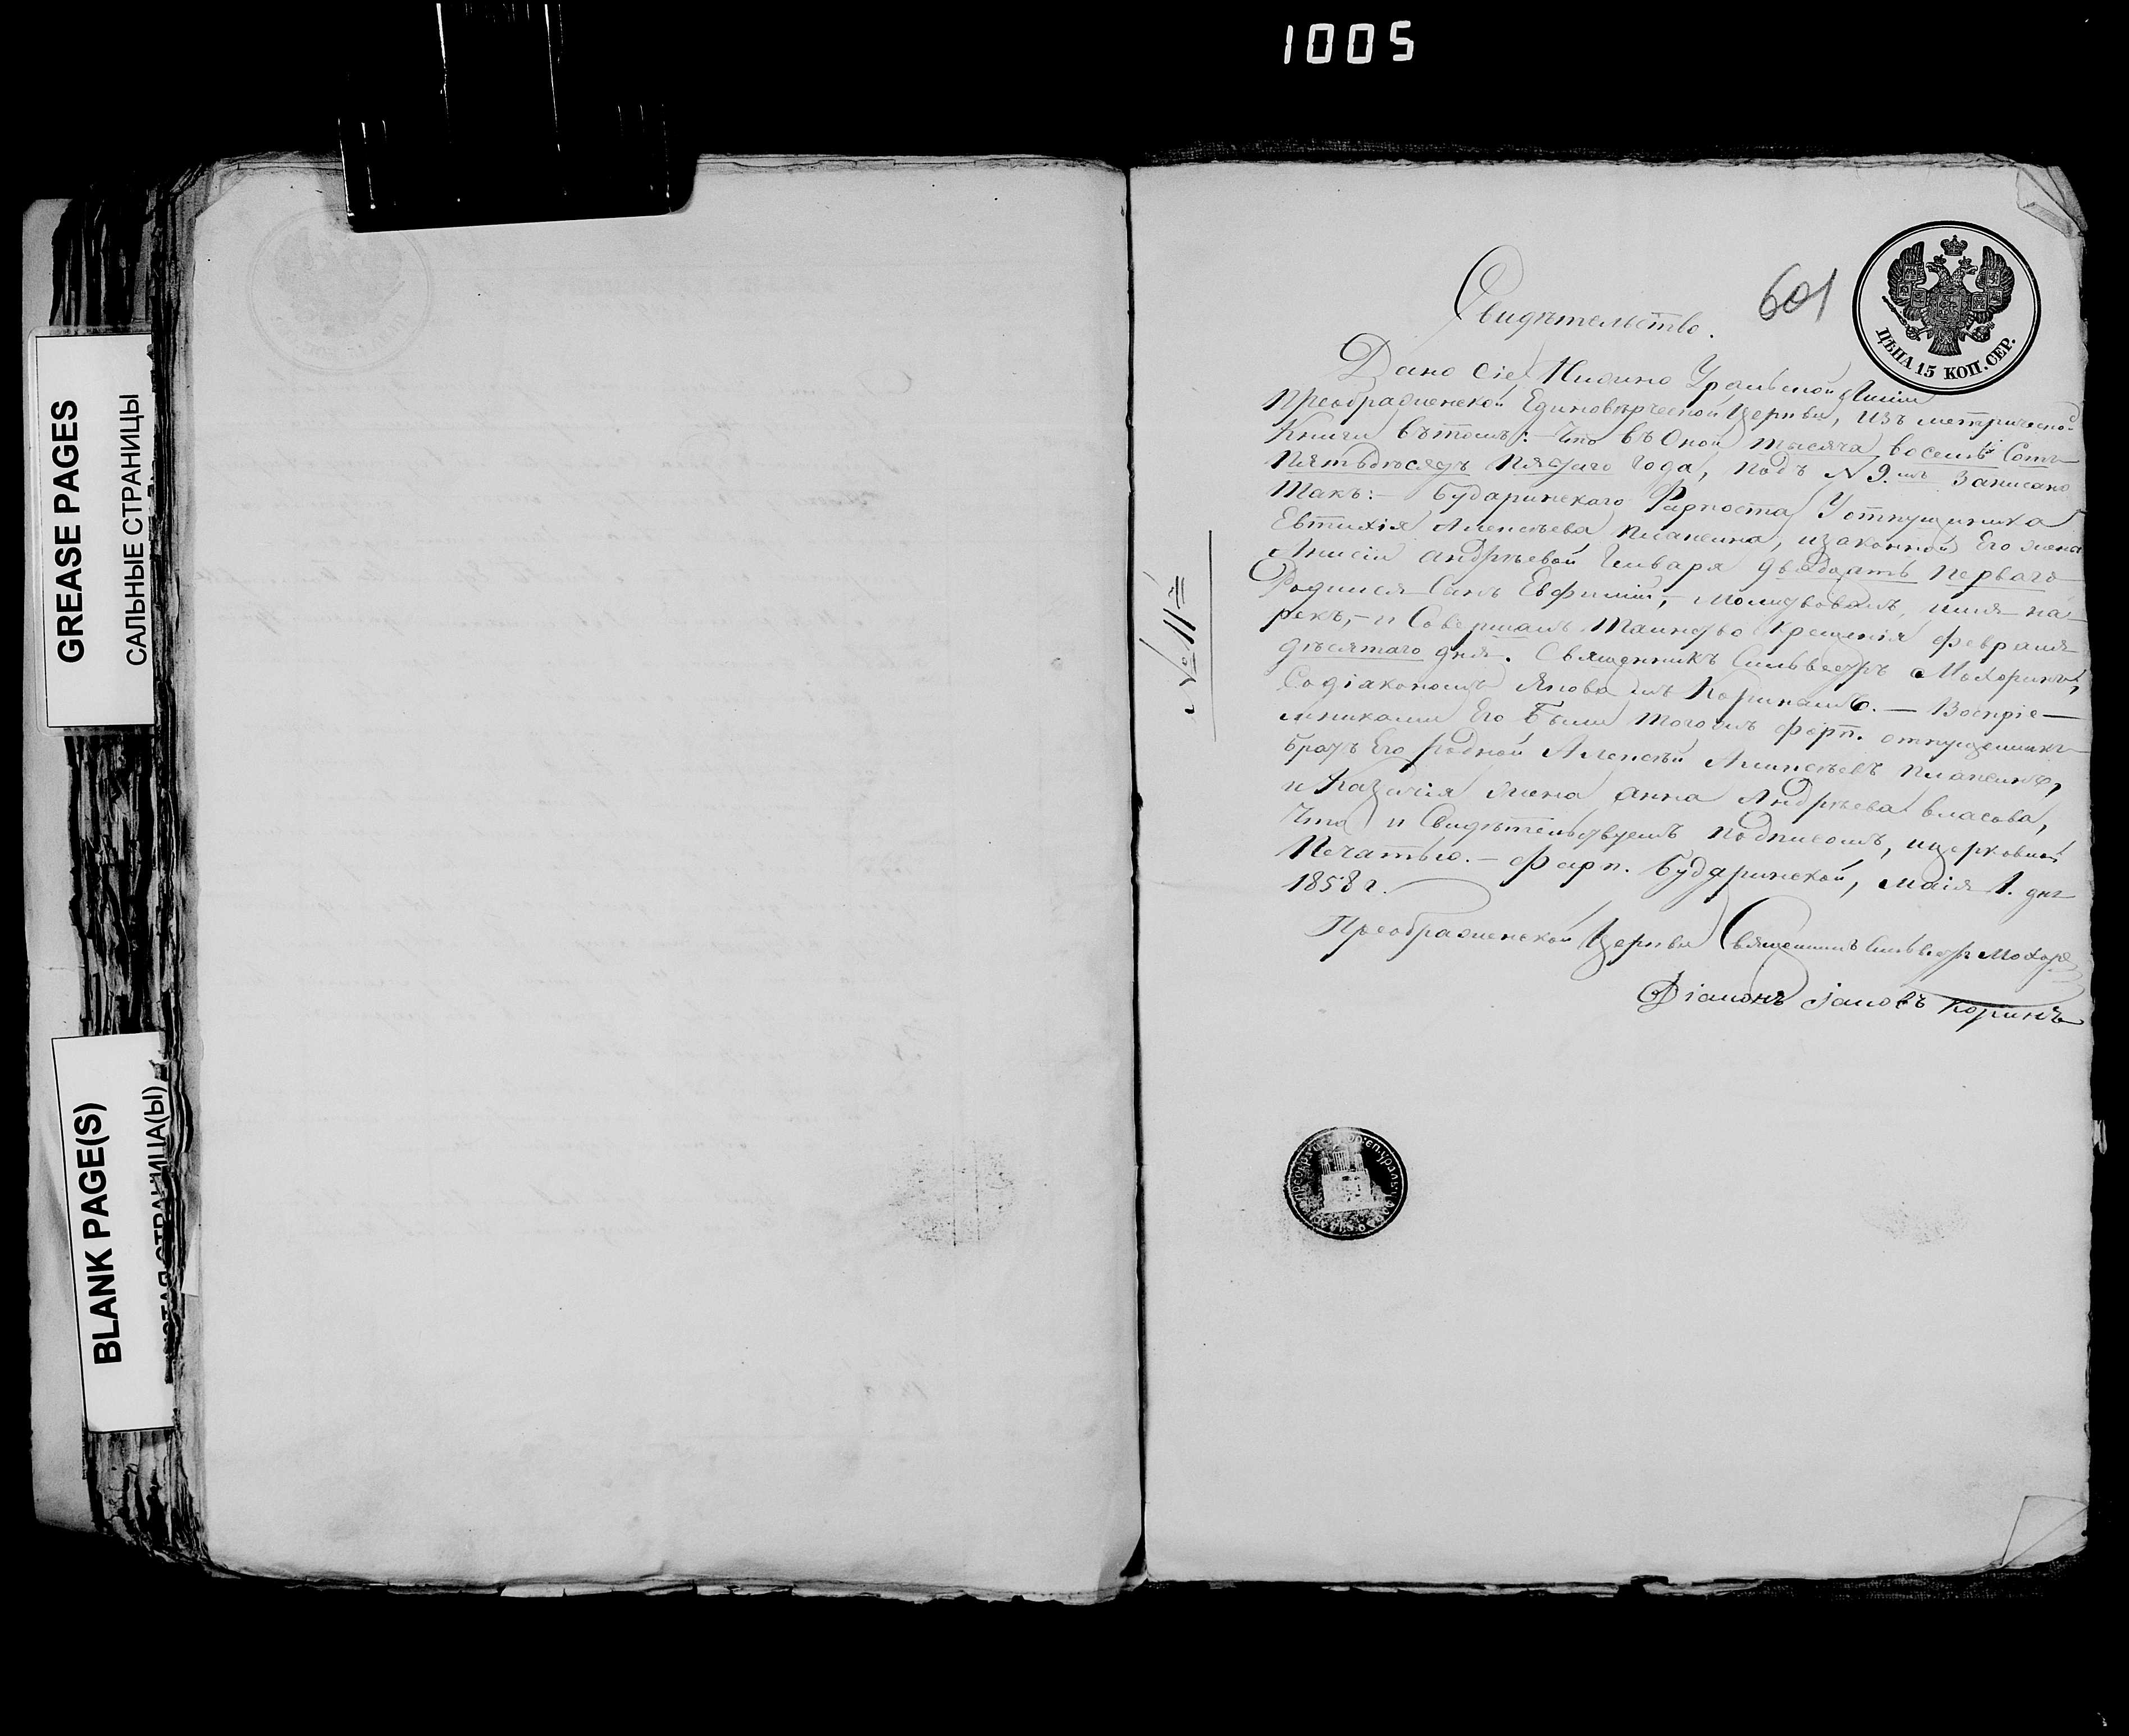 1005
GREASE PAGES
САЛЬНЫЕ СТРАНИЦЫ
BLANK PAGE(S)
ЧИСТАЯ СТРАНИЦА(Ы)
601
ЦѢНА 15 КОП. СЕР.
№ 11й
Свидѣтельство.
Дано сіе Нижне Уральской Линіи
Преображенской Единовѣрческой Церкви, изъ метрической
Книги въ томъ:- Что въ Оной тысяча восемь Сотъ
Пятьдесядъ Пядаго Года, подъ № 9.мъ Записано
Такъ:- Бударинскаго Фарпоста У отпущеника
Евтихія Алексѣева Плапсина, изаконной Его жены
Анисіи Андрѣевой Генваря двядцать перваго
Родился Сынъ Евфимій, Молидвовалъ, имя на-
рекъ,- и Совершалъ Таинство Крещенія февраля
дѣсятаго дня. Священникъ Сильвестръ Мохоринъ,
Содіакономъ Яковомъ Коринымъ. — Воспріе-
мниками Его Были тогожъ форп. отпущенникъ
братъ Его Родной Алексѣй Алексѣевъ
и Казачія жена Анна Андрѣева Власова,
Что и Свидѣтельствуемъ Подписомъ, ицерковной
Печатью. - Фарп. Бударинской, Маія 1. дня
1858 г.
Преображенской Церкви Священникъ Сильвестръ Мохоръ
Діаконъ Іаковъ Коринъ